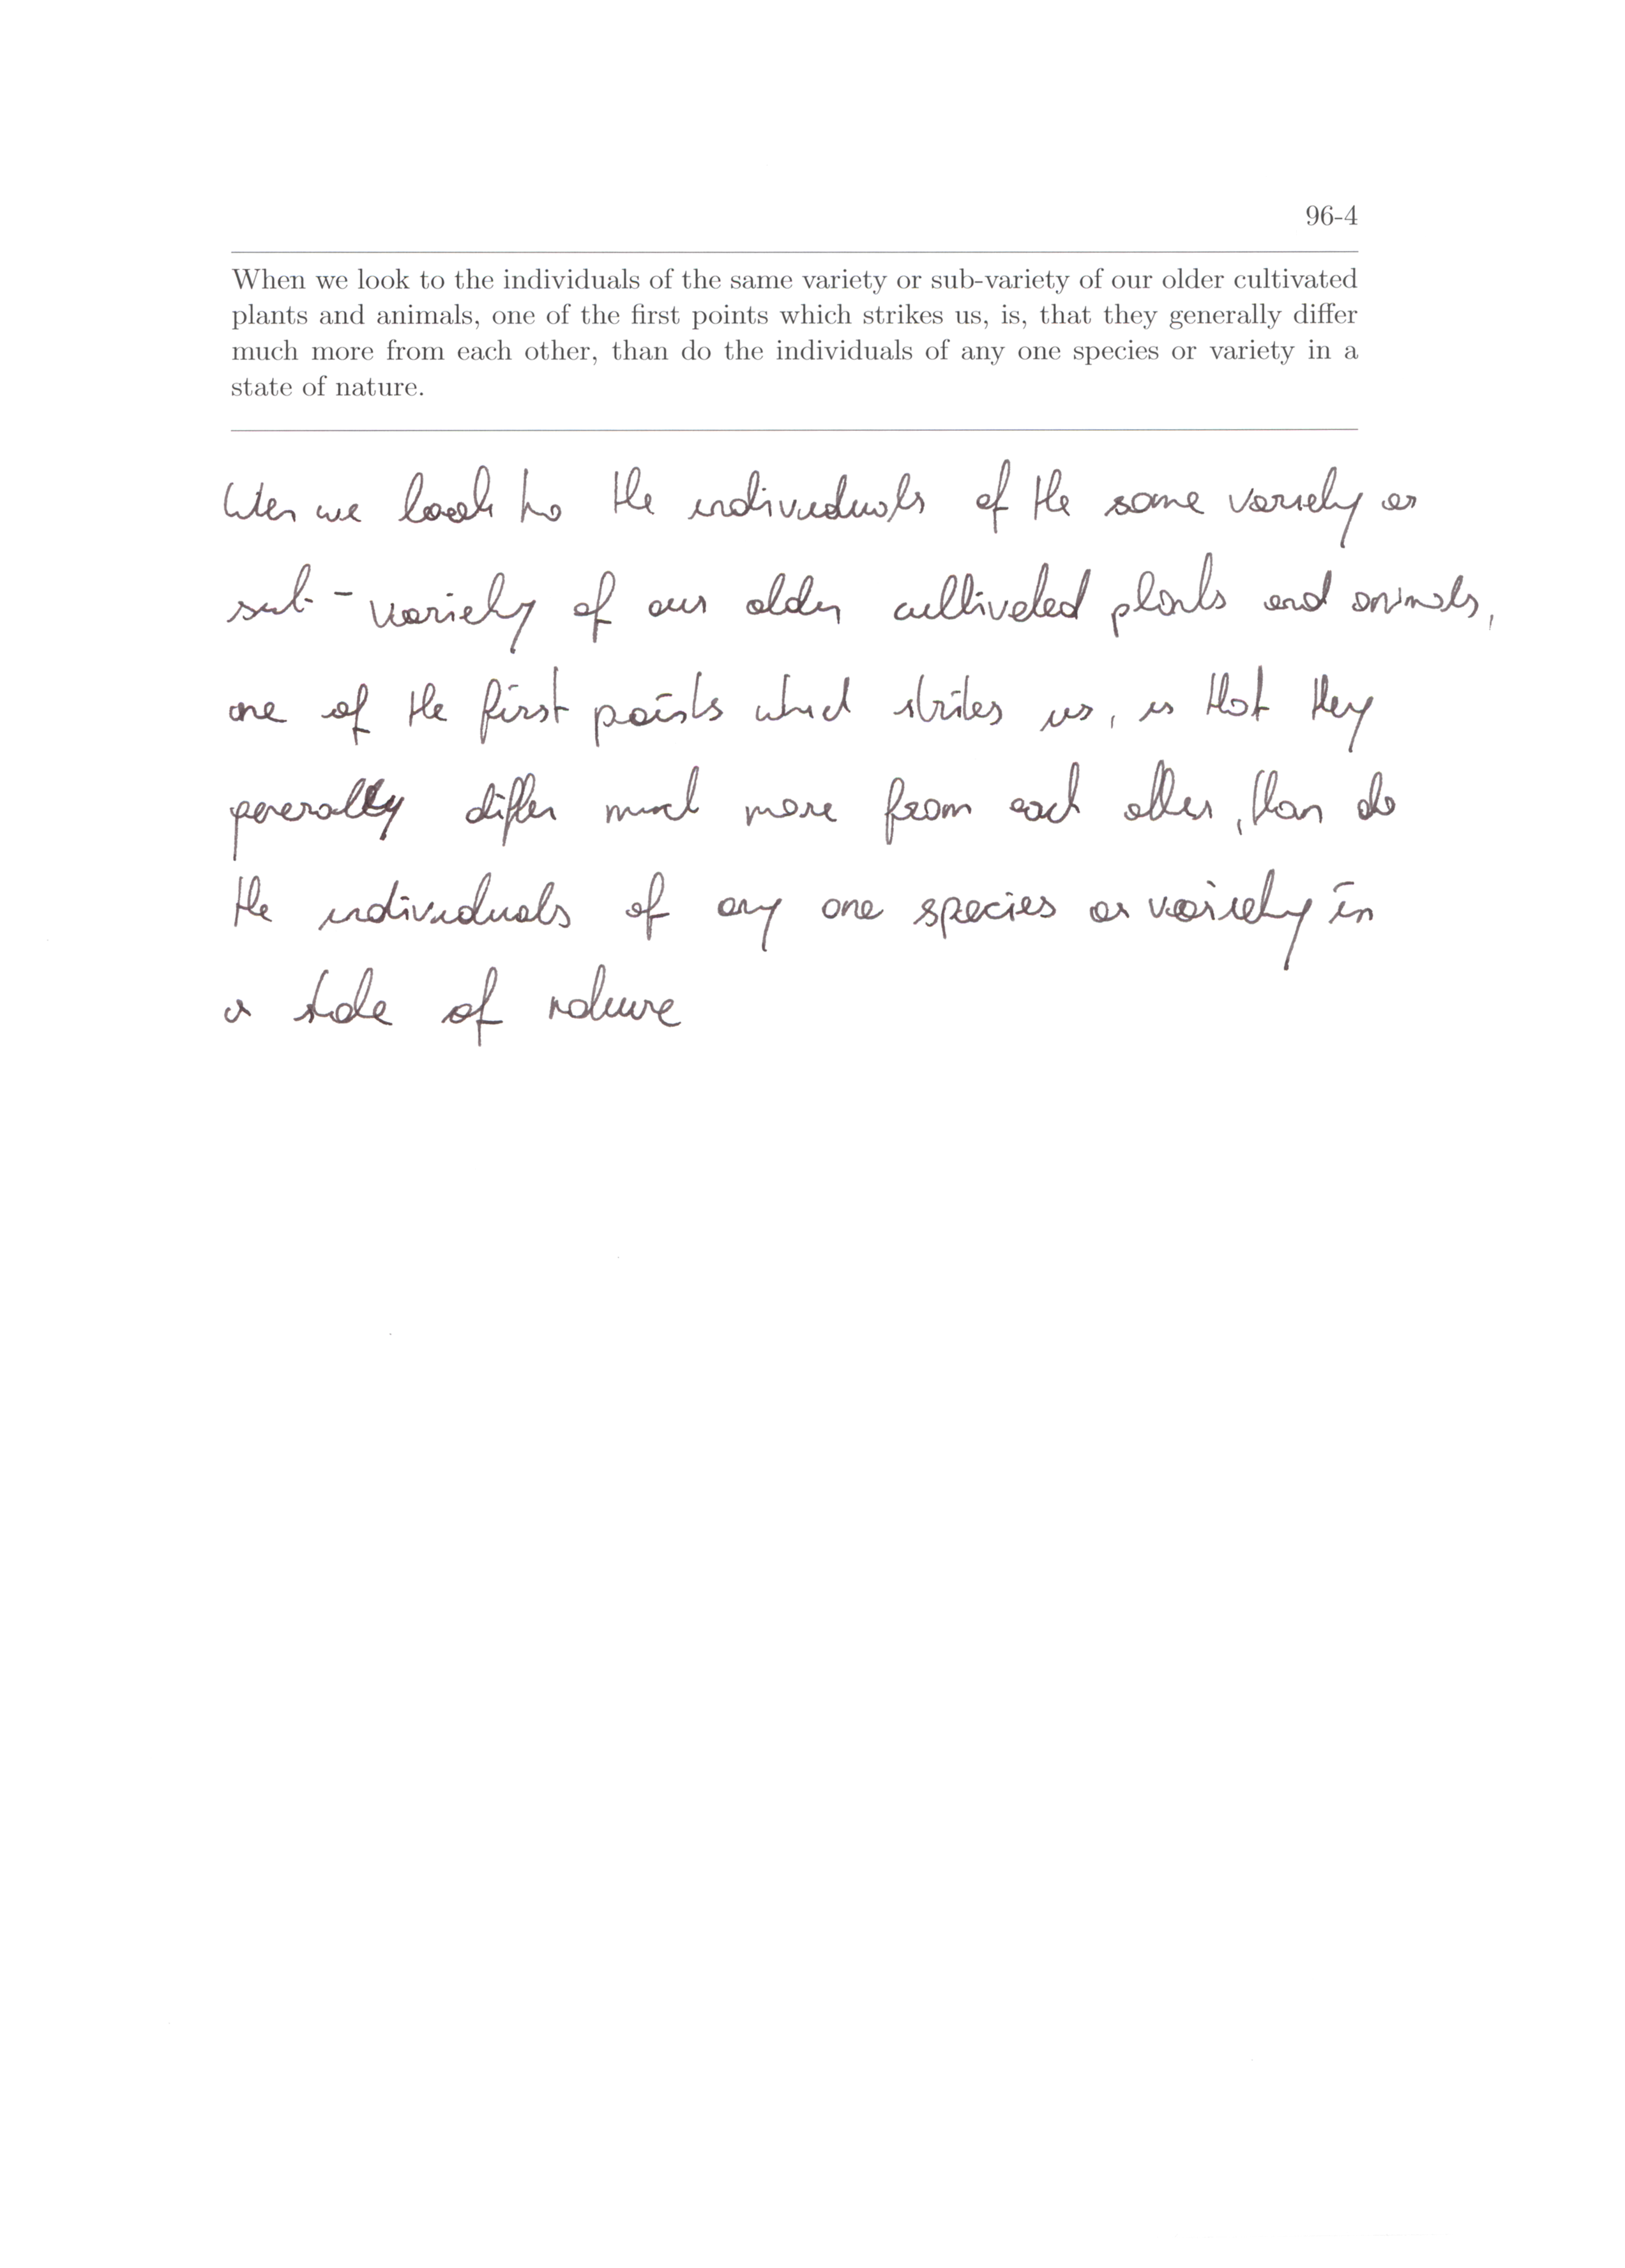 96-4
When we look to the individuals of the same variety or sub-variety of our older cultivated
plants and animals, one of the first points which strikes us, is, that they generally differ
much more from each other, than do the individuals of any one species or variety in a
state of nature.
When we look to the individuals of the same variety or
sub-variety of our older cultivated plants and animals,
one of the first points which strikes us, is that they
generally differ much more from each other, than do
the individuals of any one species or variety in
a state of nature